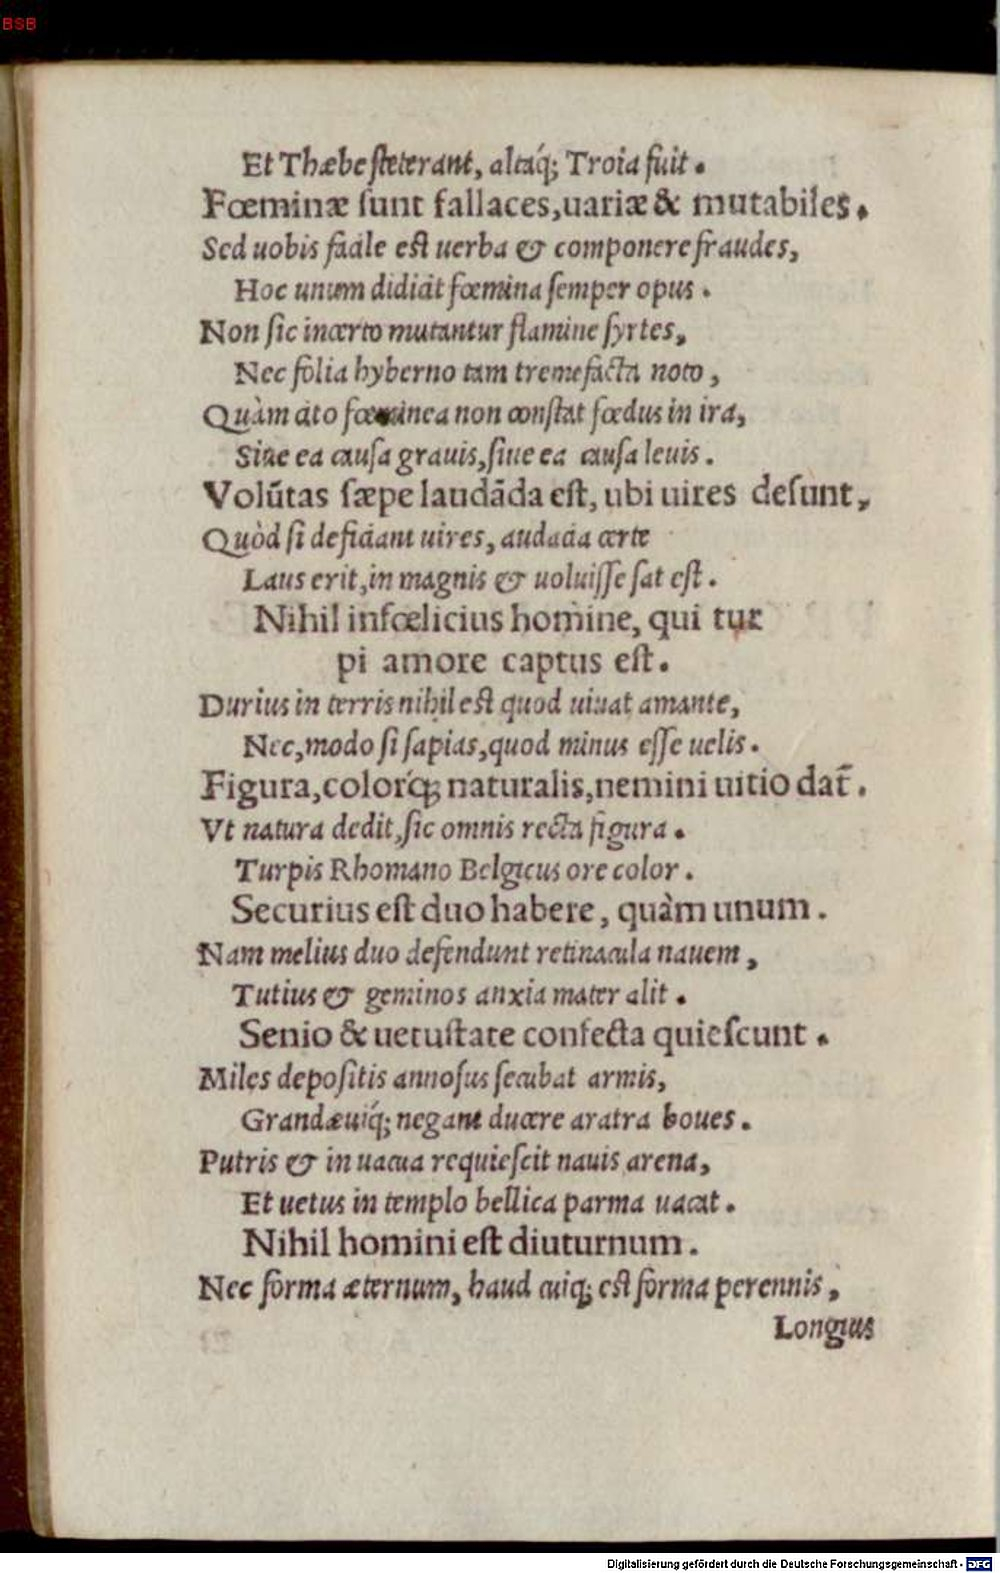 BSB
Et Thæbe ſteterant, altaq́; Troia fuit.
Fœminæ ſunt fallaces, uariæ & mutabiles.
Sed uobis facile eſt uerba & componere fraudes,
Hoc unum didicit fœmina ſemper opus.
Non ſic incerto mutantur flamine ſyrtes,
Nec folia hyberno tam tremefacta noto,
Quàm cito fœminea non conſtat fœdus in ira,
Siue ea cauſa grauis, ſiue ea cauſa leuis.
Volũtas ſæpe laudãda eſt, ubi uires deſunt,
Quòd ſi deficiant uires, audacia certe
Laus erit, in magnis & uoluiſſe ſat eſt.
Nihil infœlicius homine, qui tur
pi amore captus eſt.
Durius in terris nihil eſt quod uiuat amante,
Nec, modo ſi ſapias, quod minus eſſe uelis.
Figura, colorq́; naturalis, nemini uitio dat̃.
Vt natura dedit, ſic omnis recta figura.
Turpis Rhomano Belgicus ore color.
Securius eſt duo habere, quàm unum.
Nam melius duo defendunt retinacula nauem,
Tutius & geminos anxia mater alit.
Senio & uetuſtate confecta quieſcunt.
Miles depoſitis annoſus ſecubat armis,
Grandæuiq́; negant ducere aratra boues.
Putris & in uacua requieſcit nauis arena,
Et uetus in templo bellica parma uacat.
Nihil homini eſt diuturnum.
Nec forma æternum, haud cuiq; eſt forma perennis,
Longius
Digitalisierung gefördert durch die Deutsche Forschungsgemeinschaft - DFG